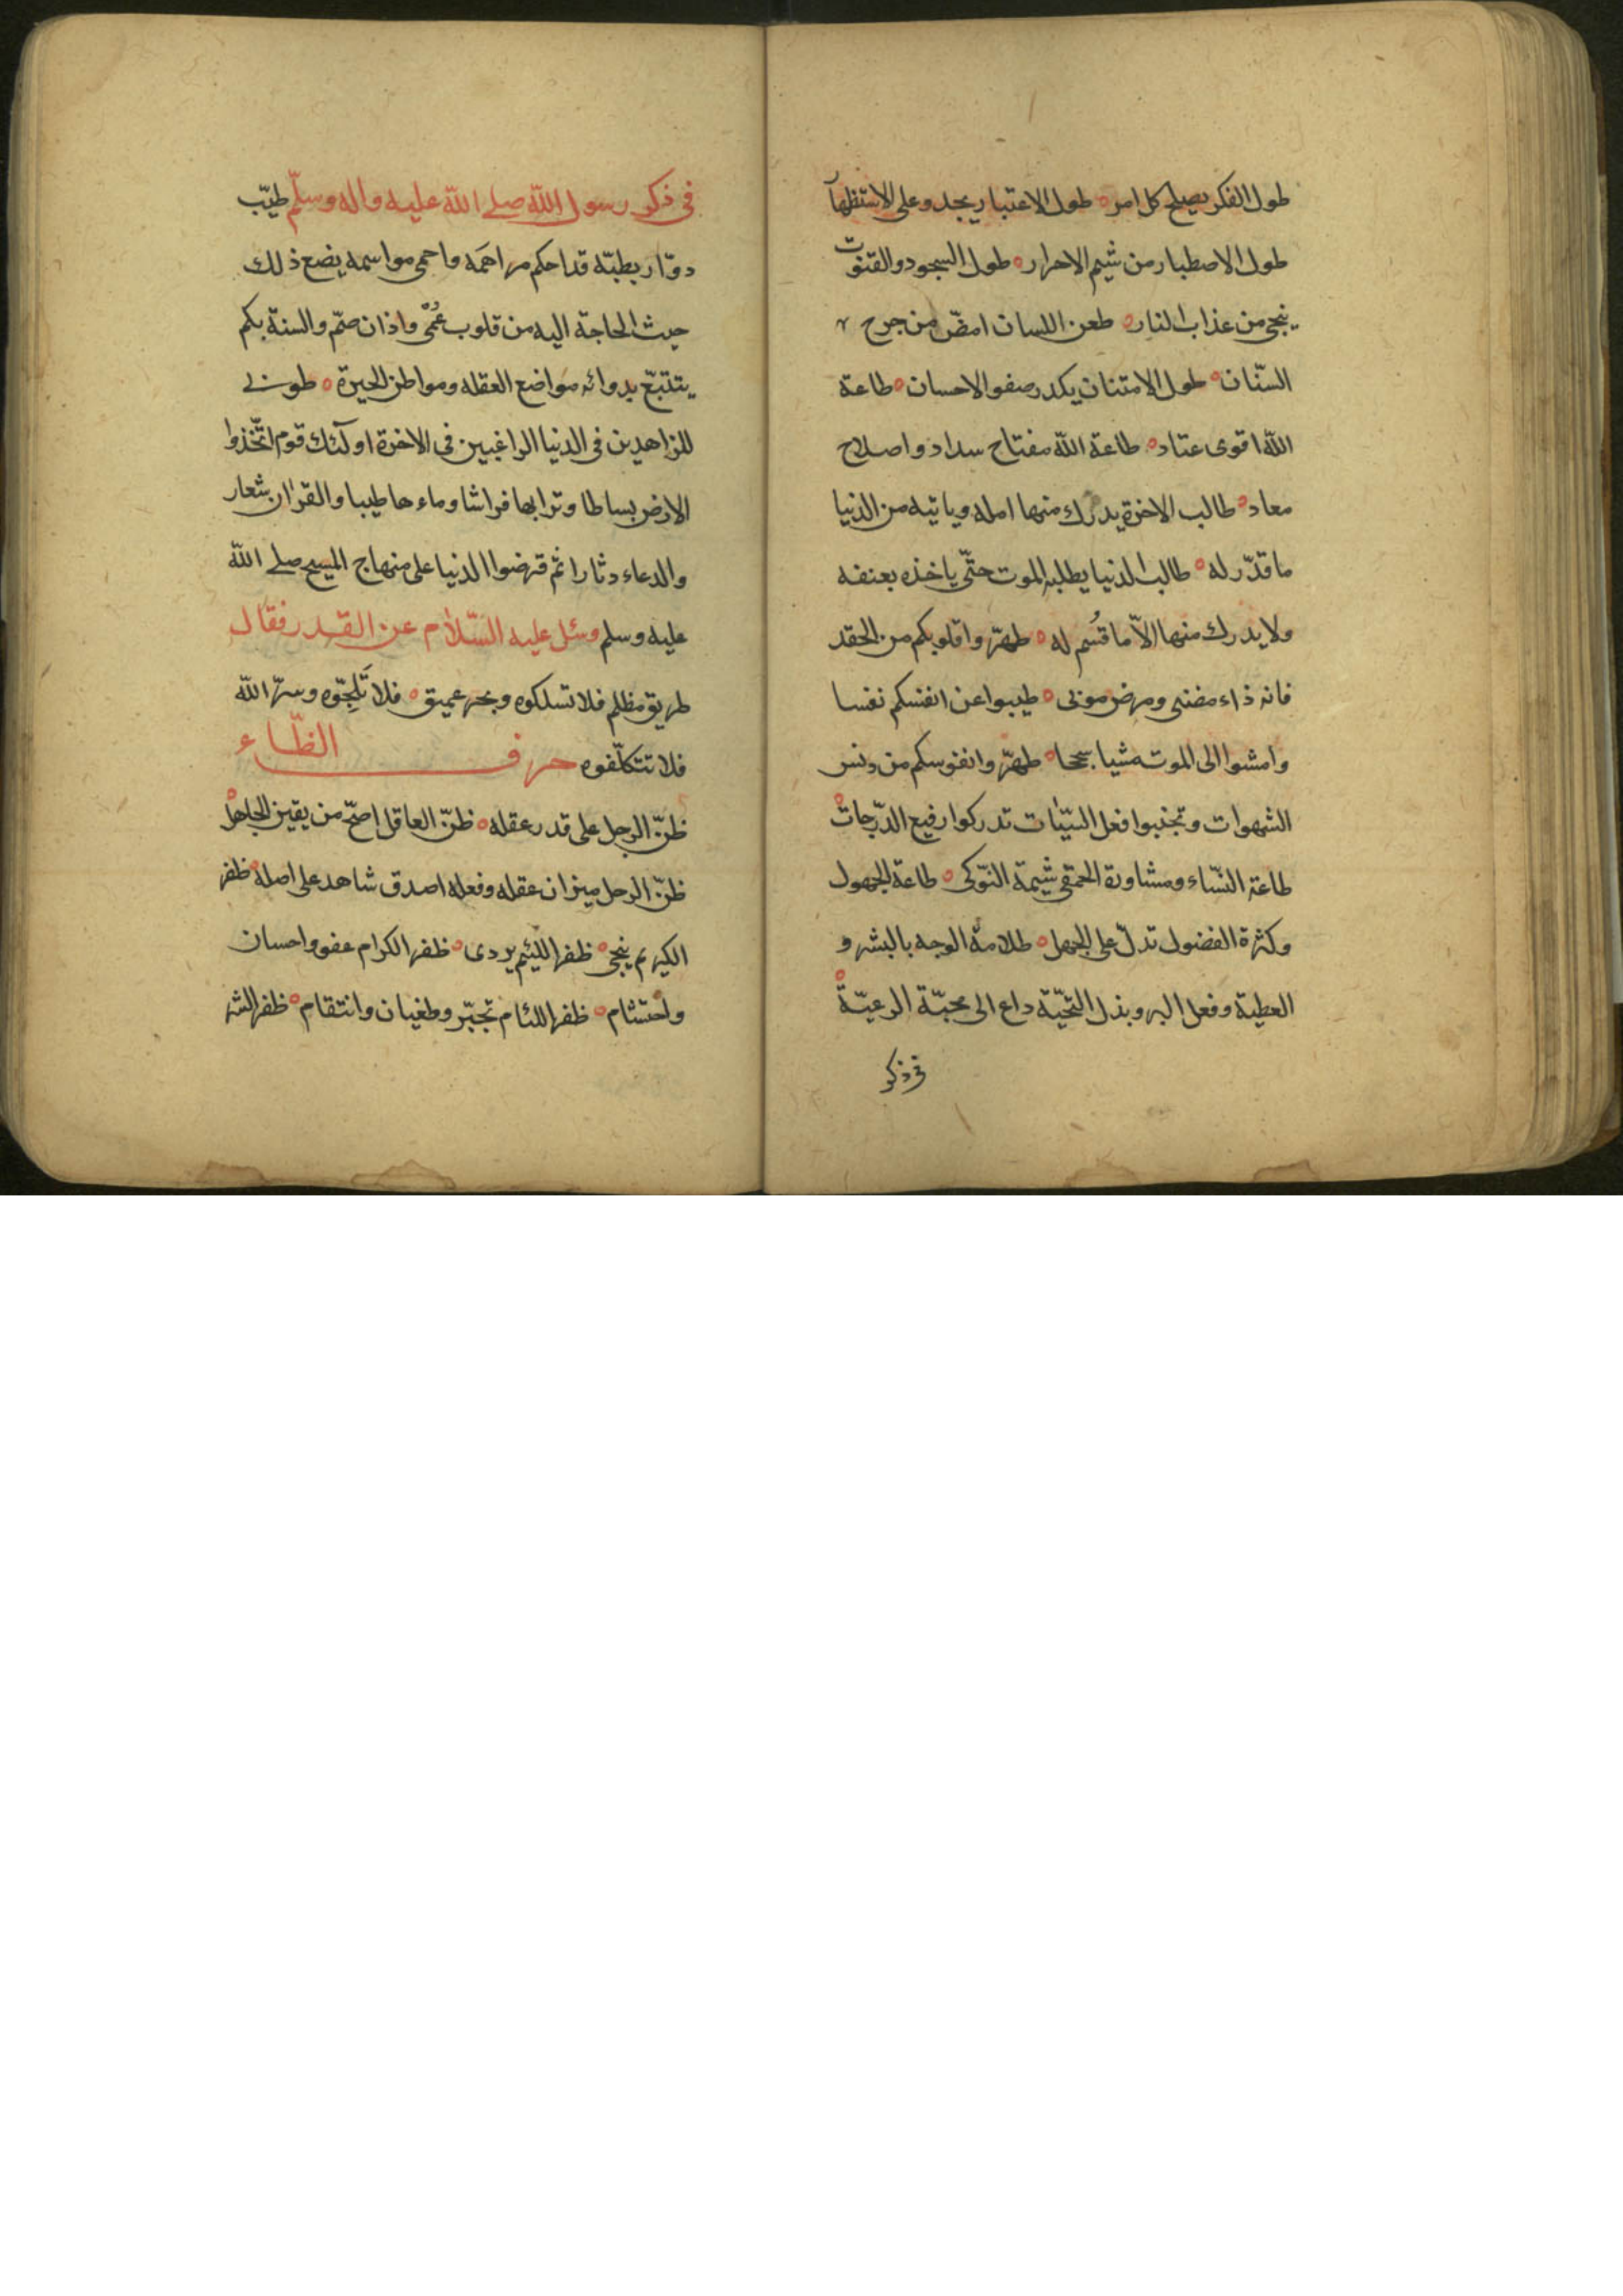 طول الفكر يصلح كل امر ه طول الاعتبار يجدو على الاستظهار
طول الاصطبار من شيم الاحرار ه طول السجود والقنوت
ينجى من عذاب النار ه طعن اللسان امضّ من جرح
السّنان ه طول الامتنان يكدر صفو الاحسان ه طاعة
اللّه اقوى عتاد ه طاعة اللّه مفتاح سداد و اصلاح
معاد ه طالب الاخرة يدرك منها امله وياتيه من الدنيا
ما قدّر له ه طالب الدنيا يطلبه الموت حتّى ياخذه بعنفه
ولا يدرك منها الاّ ما قُسم له ه طهّروا قلوبكم من الحقد
فانه داء مضنى ومرض موبى ه طيبوا عن انفسكم نفسا
وامشوا الى الموت مشيا سجحا ه طهّروا نفوسكم من دنس
الشهوات وتجنبوا فعل السيّئات تدركوا رفيع الدّرجات ه
طاعة النسّاء ومشاورة الحمقى شيمة النّوكى ه طاعة الجهول
وكثرة الفضول تدلّ على الجهل ه طلاقة الوجه بالبشر و
العطية وفعل البر وبذل التحيّة داع الى محبّة الرعيّة ه
فى ذكر
فى ذكر رسول اللّه صلے اللّه عليه واله وسلّم طبيب
دوّار بطبّه قد احكم مراهمه واحمى مواسمه يضع ذلك
حيث الحاجة اليه من قلوب عُمى واذان صمّ والسنة بكم
يتتبّع بدوائه مواضع العقله ومواطن الحيرة ه طوبى
للزاهدين فى الدنيا الراغبين فى الاخرة اولٓئك قوم اتّخذوا
الارض بساطا وترابها فراشا وماءها طيبا والقران شعار
والدعاء دثارا ثم قرضوا الدنيا على منهاج المسيح صلے اللّه
عليه وسلم وسئل عليه السّلام عن القدر فقال
طريق مظلم فلا تسلكوه وبحر عميق ه فلا تَلِجّوه وسرّ اللّه
فلا تتكلّفوه حرف الظّاء
ظنّ الرجل على قدر عقله ه ظنّ العاقل اصحّ من يقين الجاهل ه
ظنّ الرجل ميزان عقله وفعله اصدق شاهد على اصله ه ظفر
الكريم ينجى ه ظفر اللئيم يردى ه ظفر الكرام عفو واحسان
واحتشام ه ظفر اللئام تجبّر وطغيان وانتقام ه ظفر الشر